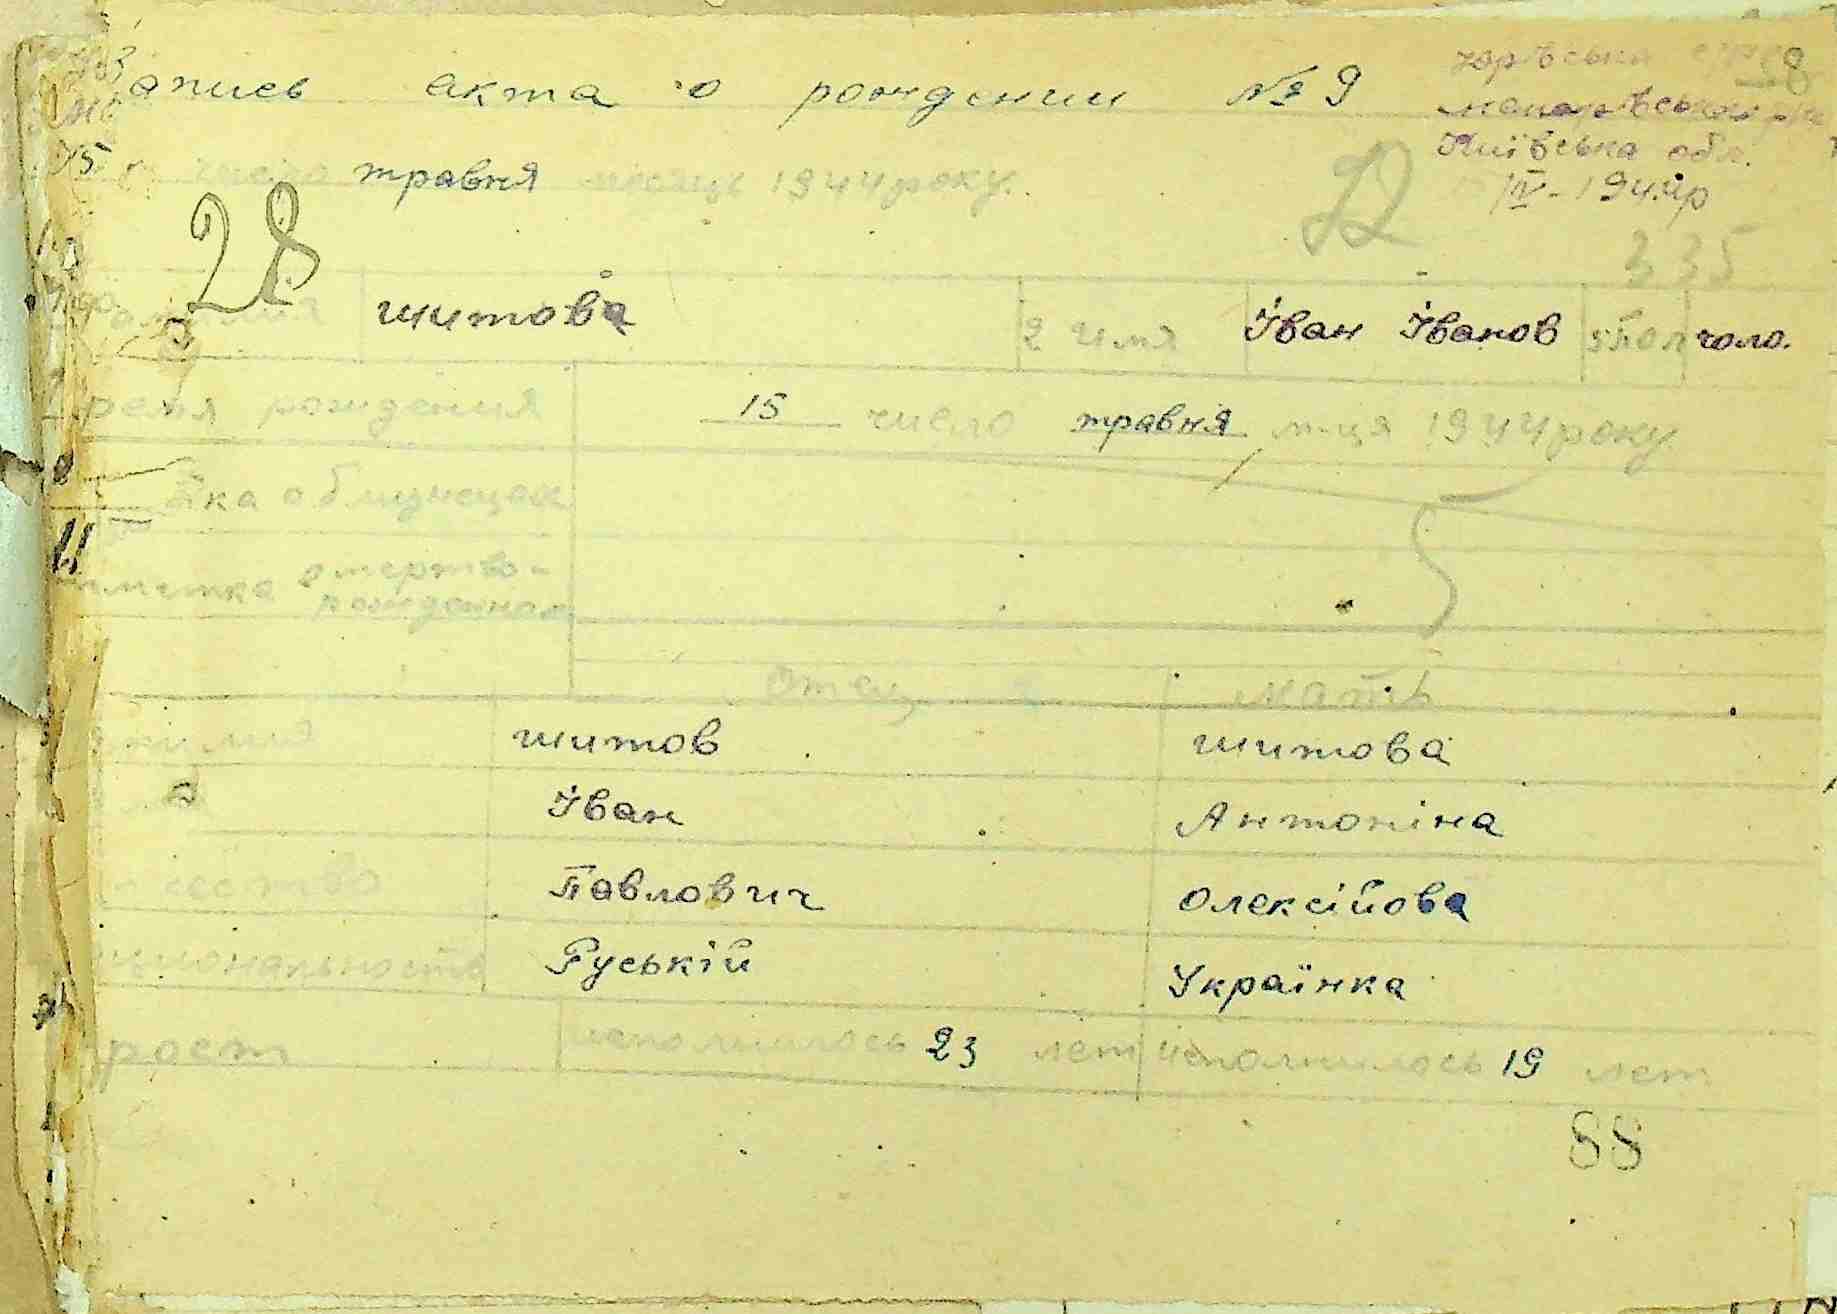 Запись акта о рождении № 9
Юрівська с/р 58
макарівського р-на
Київська обл.
IV - 1944р
15 числа травня місяця 1944 року.
28
335
Фамилия шитова 2 Имя Іван Іванов 3 Пол чоло.
Время рождения 15 число травня м-ця 1944 року
о близнецах
отметка о мертво-
рожденном
Отец мать
фамилия шитов шитова
Іван Антоніна
отчество Павлович Олексійова
национальность Руській Українка
возраст исполнилось 23 лет исполнилось 19 лет
88